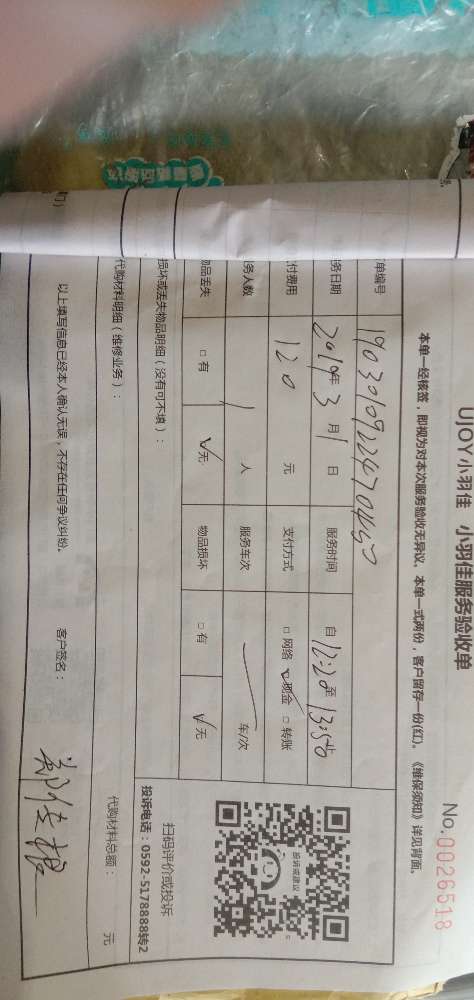 UJOY小羽佳 小羽佳服务验收单
No.0026518
本单一经核签，即视为对本次服务验收无异议。本单一式两份，客户留存一份(红)。《维保须知》详见背面。
单编号 19030109224704450
务日期 2019年3月1日 服务时间 自12:20至13:50止
付费用 120 元 支付方式 □网络 ☑现金 □转账
务人数 1 人 服务车次 车/次
物品丢失 □有 ☑无 物品损坏 □有 ☑无
投诉或建议
扫码评价或投诉
投诉电话：0592-5178888转2
损坏或丢失物品明细（没有可不填）：
代购材料明细（维修业务）：
代购材料总额： 元
以上填写信息已经本人确认无误，不存在任何争议纠纷。 客户签名：